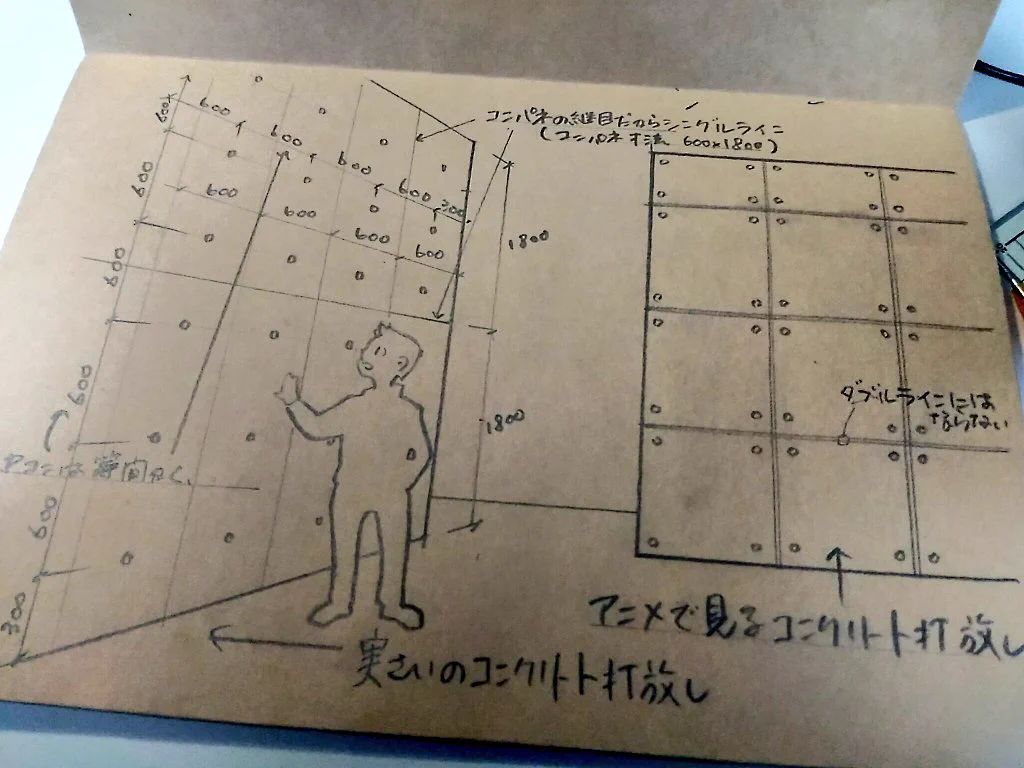 コンパネの継目だからシングルライン
(コンパネ寸法 600×1800)
600
600
600
600
600
300
600
600
600
600
600
600
600
600
300
1800
1800
ダブルラインには
ならない
Pコンは等間かく、
アニメで見るコンクリート打放し
実さいのコンクリート打放し